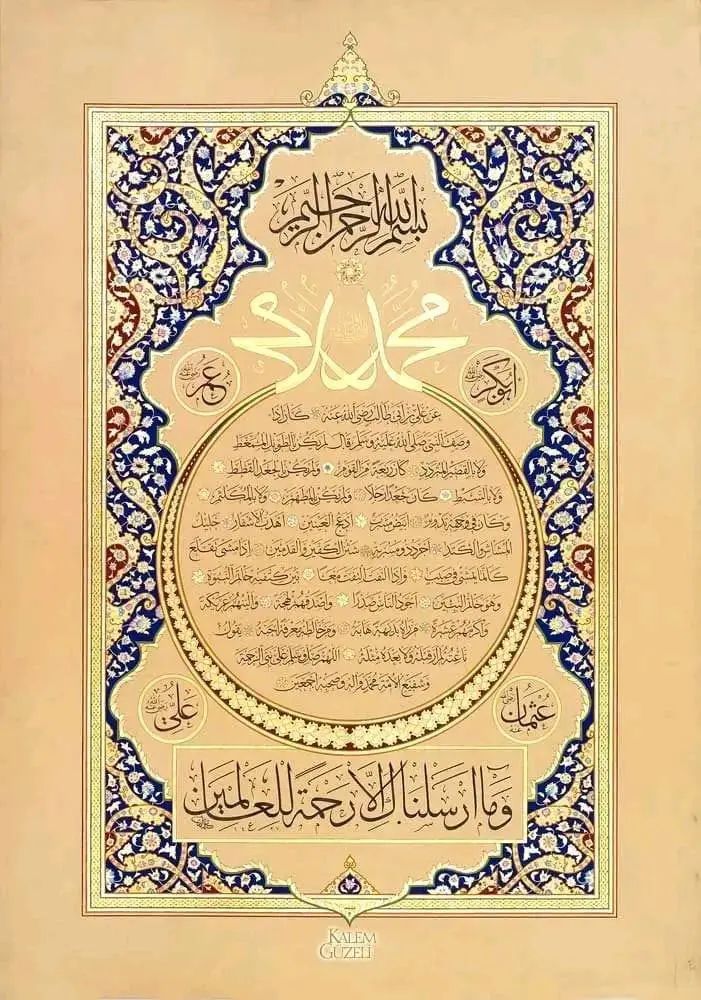 بسم الله الرحمن الرحيم
محمد
ابوبكر رضي الله عنه
عمر رضي الله عنه
عن علي بن ابي طالب رضي الله عنه كان اذا
وصف النبي صلى الله عليه وسلم قال لم يكن بالطويل الممغط
ولا بالقصير المتردد كان ربعة من القوم ولم يكن بالجعد القطط
ولا بالسبط كان جعدا رجلا ولم يكن بالمطهم ولا بالمكلثم
وكان في وجهه تدوير ابيض مشرب ادعج العينين اهدب الاشفار جليل
المشاش والكتد اجرد ذو مسربة شثن الكفين والقدمين اذا مشى تقلع
كانما يمشي في صبب واذا التفت التفت معا بين كتفيه خاتم النبوة
وهو خاتم النبيين اجود الناس صدرا واصدقهم لهجة والينهم عريكة
واكرمهم عشرة من راه بديهة هابه ومن خالطه معرفة احبه يقول
ناعته لم ار قبله ولا بعده مثله اللهم صل وسلم على نبي الرحمة
وشفيع الامة محمد واله وصحبه اجمعين
عثمان رضي الله عنه
علي رضي الله عنه
وما ارسلناك الا رحمة للعالمين
KALEM
GÜZELİ